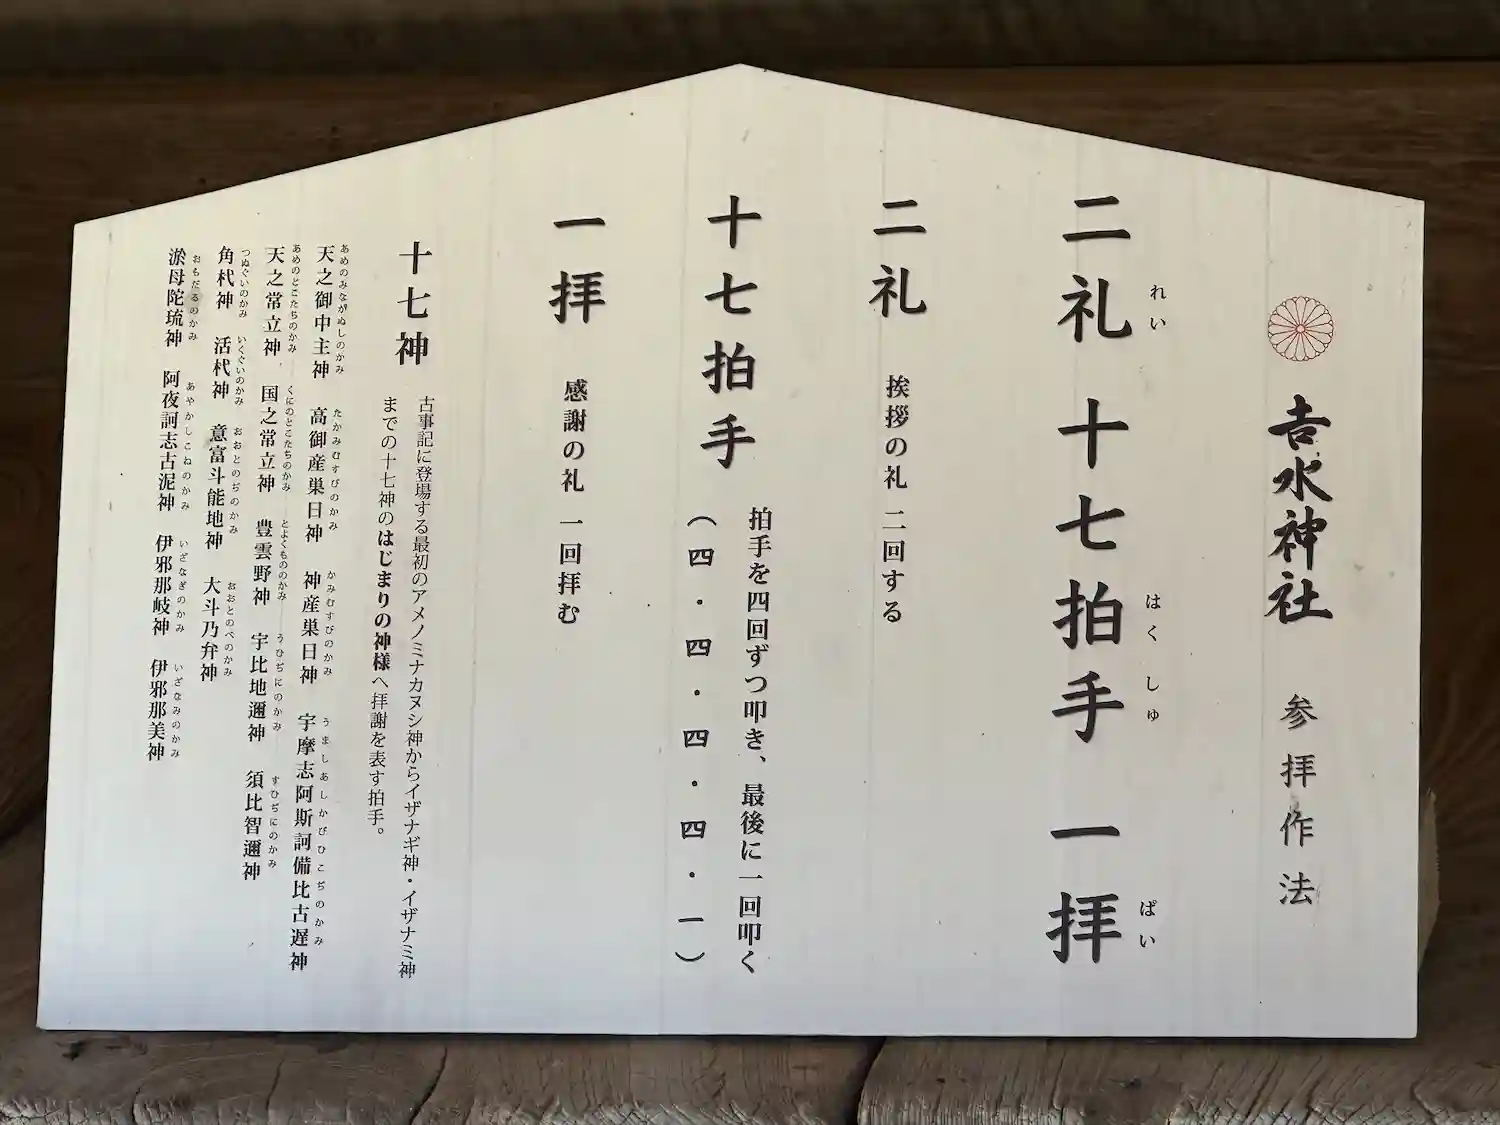 吉水神社 参拝作法
二礼 十七拍手 一拝
れい はくしゅ ぱい
二礼 挨拶の礼 二回する
十七拍手 拍手を四回ずつ叩き、最後に一回叩く
(四・四・四・四・一)
一拝 感謝の礼 一回拝む
十七神 古事記に登場する最初のアメノミナカヌシ神からイザナギ神・イザナミ神
までの十七神のはじまりの神様へ拝謝を表す拍手。
あめのみなかぬしのかみ たかみむすびのかみ かみむすびのかみ うましあしかびひこぢのかみ
天之御中主神 高御産巣日神 神産巣日神 宇摩志阿斯訶備比古遅神
あめのとこたちのかみ くにのとこたちのかみ とよくもののかみ うひぢにのかみ すひぢにのかみ
天之常立神 国之常立神 豊雲野神 宇比地邇神 須比智邇神
つぬぐいのかみ いくぐいのかみ おおとのぢのかみ おおとのべのかみ
角杙神 活杙神 意富斗能地神 大斗乃弁神
おもだるのかみ あやかしこねのかみ いざなぎのかみ いざなみのかみ
淤母陀琉神 阿夜訶志古泥神 伊邪那岐神 伊邪那美神